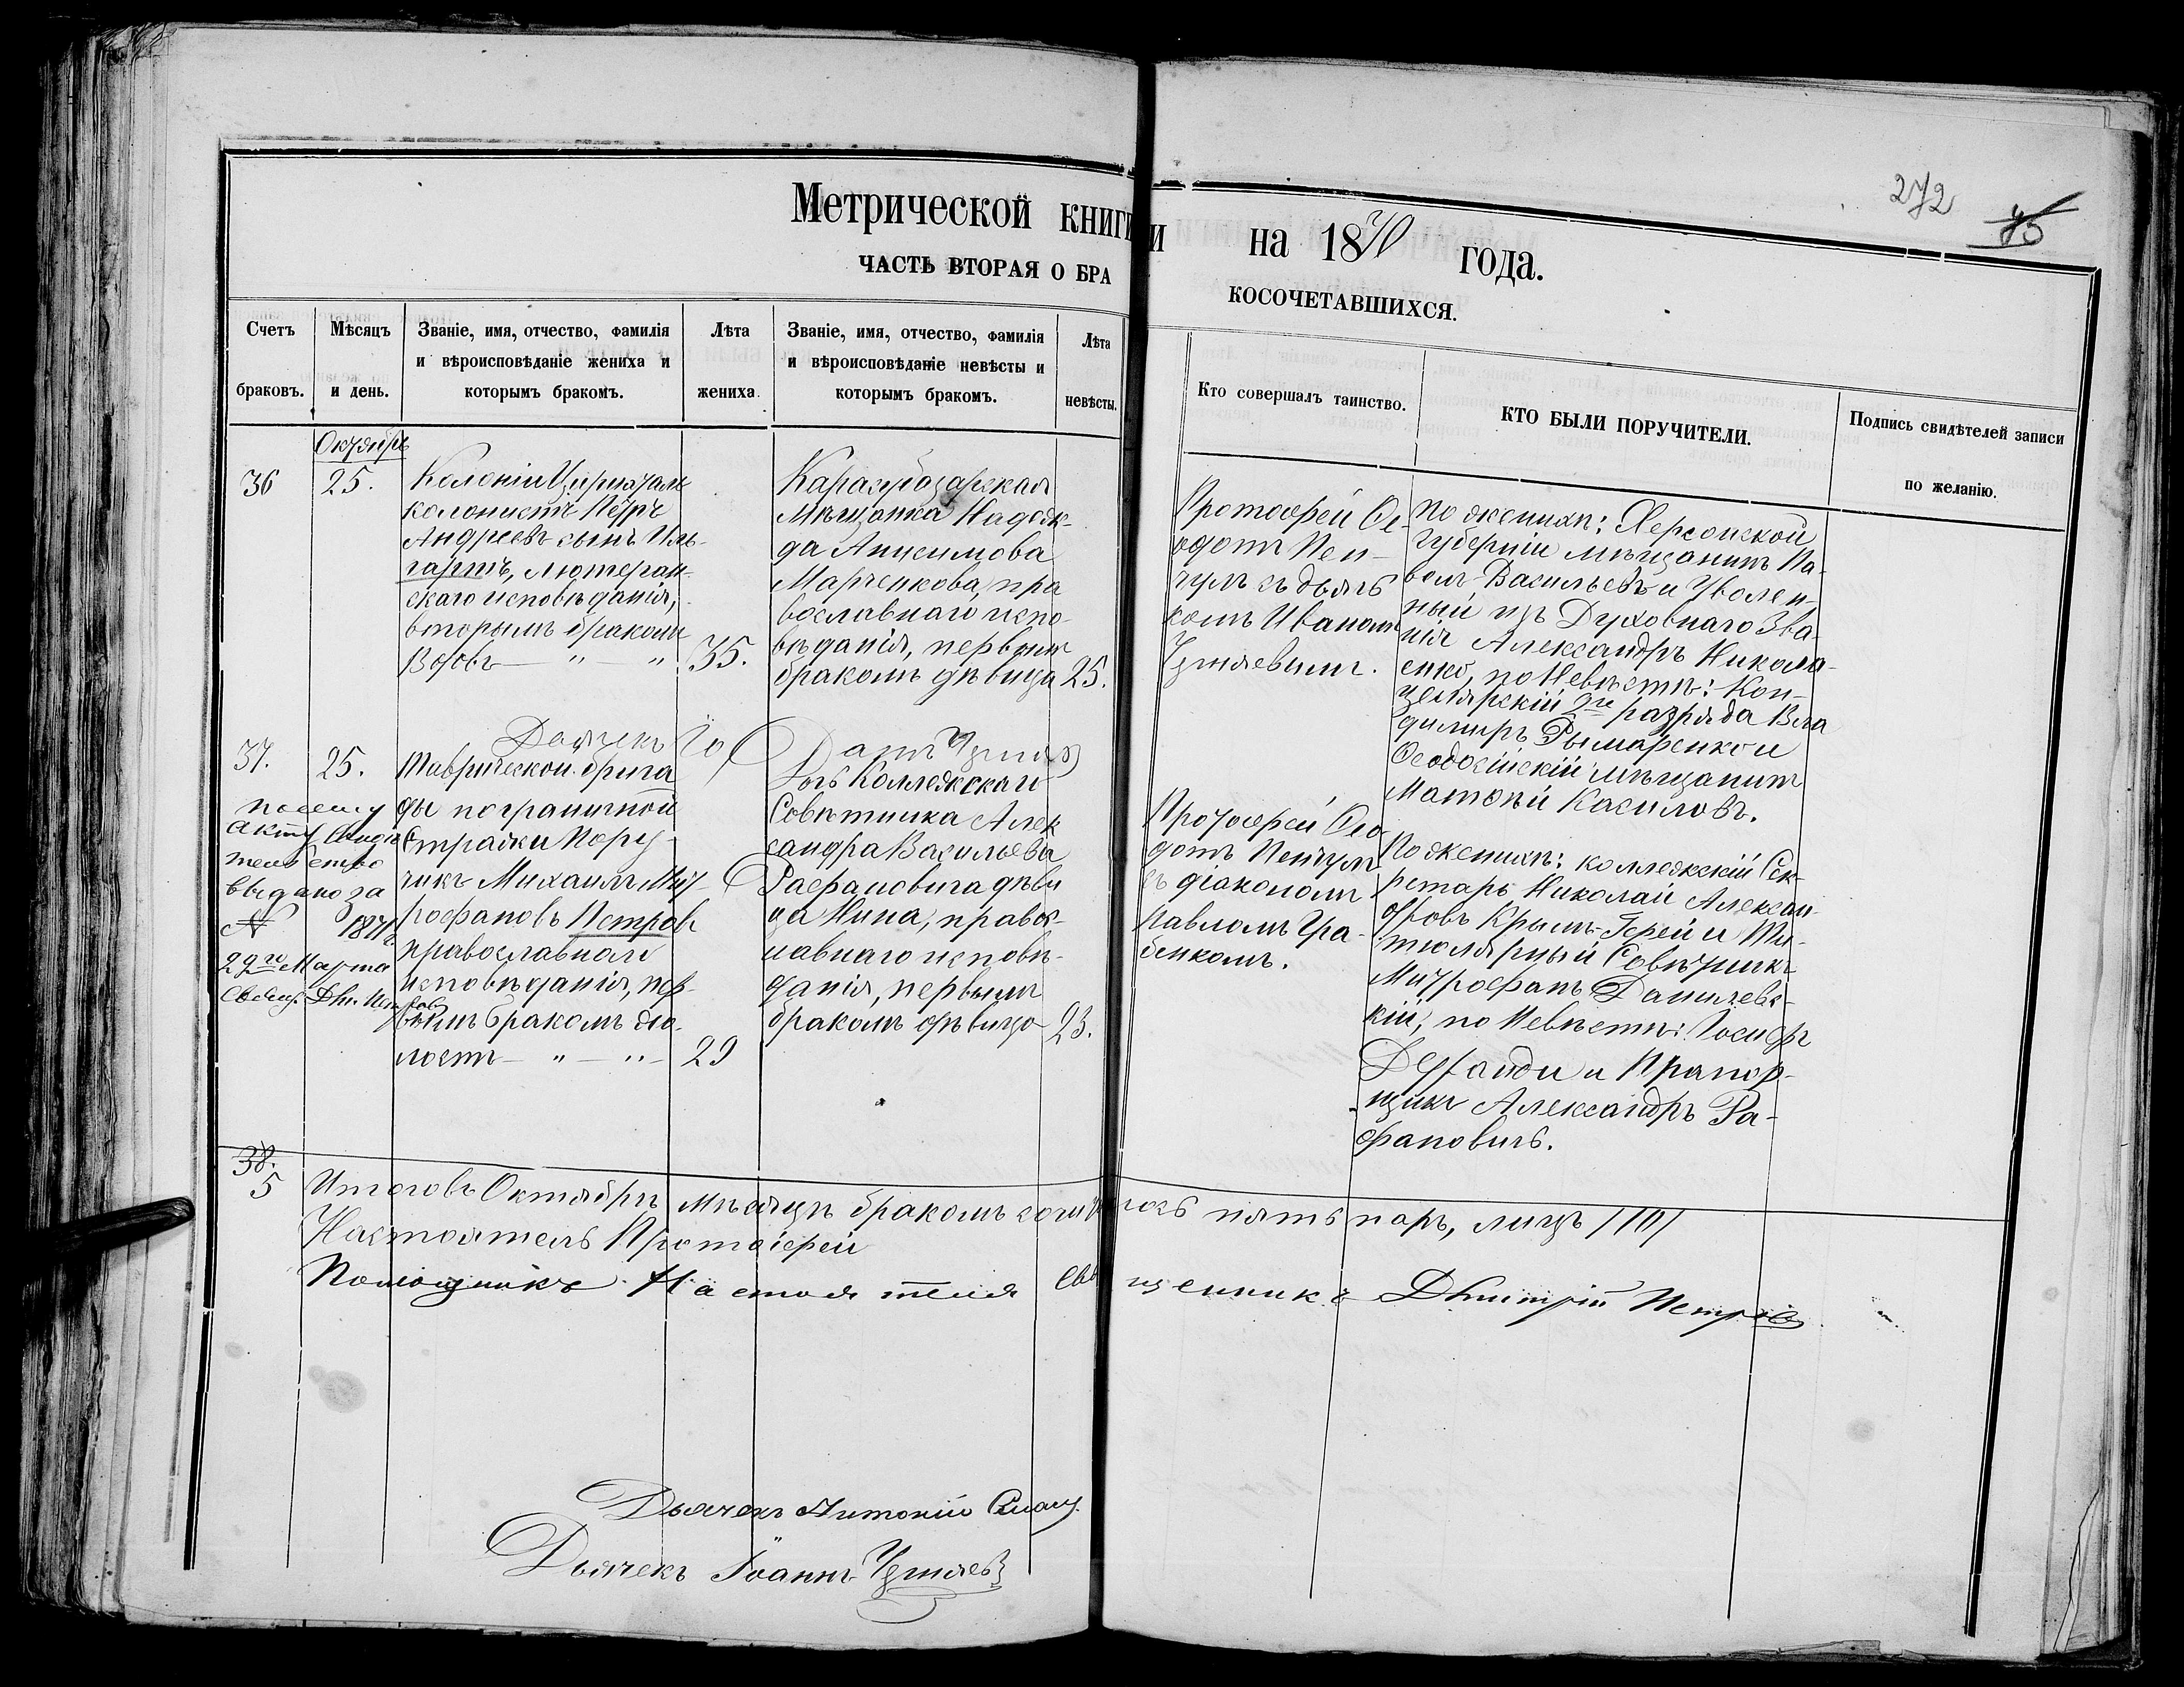 272
75
Метрической книги на 1870 года.
ЧАСТЬ ВТОРАЯ О БРАКОСОЧЕТАВШИХСЯ.
Счетъ браковъ.
Мѣсяцъ и день.
Званіе, имя, отчество, фамилія
и вѣроисповѣданіе жениха и
которымъ бракомъ.
Лѣта жениха.
Званіе, имя, отчество, фамилія
и вѣроисповѣданіе невѣсты и
которымъ бракомъ.
Лѣта невѣсты.
Кто совершалъ таинство.
КТО БЫЛИ ПОРУЧИТЕЛИ.
Подпись свидѣтелей записи
по желанію.
Октябрь
36
25.
Колоніи Цирихталь
колонистъ Петръ
Андреевъ сынъ Иль-
гартъ, лютеран-
скаго исповѣданія,
вторымъ бракомъ
Вдовъ — " — "
35.
Карасубазарская
Мѣщанка Надеж-
да Анисимова
Марченкова, пра
вославнаго испо-
вѣданія, первымъ
бракомъ дѣвица
25.
Протоіерей Ѳе-
одотъ Пен-
чулъ съ дьяч
комъ Иваномъ
по женихѣ: Херсонской
Губерніи мѣщанинъ Па-
велъ Васильевъ и Уволен-
ный изъ Духовнаго Зва-
нія Александръ Никола-
енко, по Невѣстѣ: Кан-
целярскій 2го разряда Вла
димиръ Рымаренко и
Ѳеодосійскій мѣщанинъ
Матвѣй Касиловъ.
37.
25.
Таврической брига
ды пограничной
Стражи Пору-
чикъ Михаилъ Мит-
рофановъ Петровъ
православнаго
исповѣданія, пер-
вымъ бракомъ хо-
лостъ — " — " —
29
по сему
акту Свидѣ
тельство
выдано за
№ 1871 г
29го Марта
Свящ. Дм. Петровъ
Дочь Коллежскаго
Совѣтника Алек
сандра Васильева
Рафановича дѣви
ца Нина, правос-
лавнаго исповѣ-
данія, первымъ
бракомъ дѣвица
23.
Протоіерей Ѳео
дотъ Пенчулъ
съ діакономъ
Павломъ Гра-
бенкомъ.
По женихѣ: коллежскій Сек-
ретарь Николай Алексан-
дровъ Крымъ-Герей и Ти-
тулярный Совѣтникъ
Митрофанъ Данилевс-
кій, по Невѣстѣ: Іосифъ
и Прапор-
щикъ Александръ Ра-
фановичъ.
38.
5
Итого въ Октябрѣ мѣсяцѣ бракомъ сочеталось пять паръ, лицъ /10/
Настоятель Протоіерей
Помощникъ Настоятеля Священникъ Дмитрій Петровъ
Дьячекъ Антоній
Дьячекъ Іоаннъ